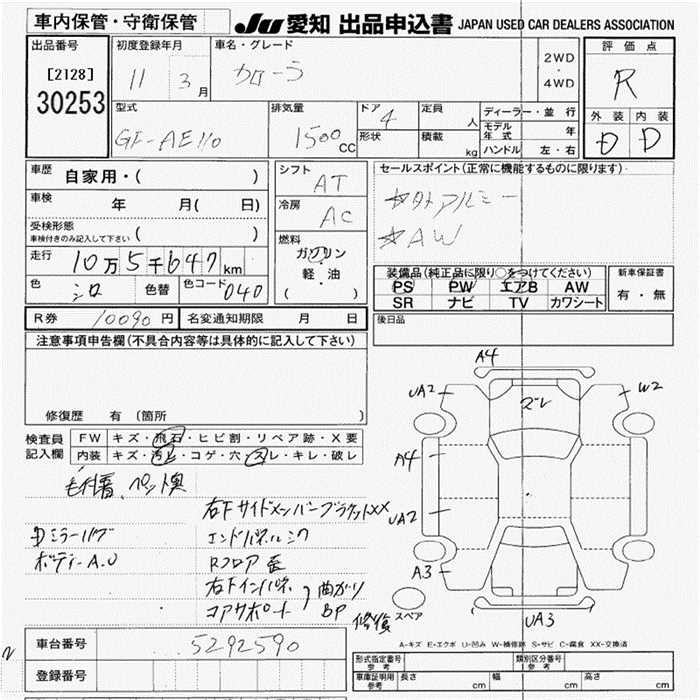 車内保管・守衛保管
JU 愛知 出品申込書 JAPAN USED CAR DEALERS ASSOCIATION
出品番号
[2128]
30253
初度登録年月
11 3月
車名・グレード
カローラ
2WD
・
4WD
評価点
R
外装 内装
D D
型式
GF-AE110
排気量
1500 CC
ドア 4
形状
定員 人
積載 kg
ディーラー・並行
モデル年式 年
ハンドル 左・右
車歴 自家用・( )
車検 年 月( 日)
受検形態
車検付きのみ記入して下さい ( )
走行 10万5千647km
色 シロ 色替 色コード 040
シフト AT
冷房 AC
燃料
ガソリン
軽・油
( )
セールスポイント(正常に機能するものに限ります)
☆外アルミー
☆AW
装備品(純正品に限り○をつけてください)
PS PW エアB AW
SR ナビ TV カワシート
新車保証書
有・無
R券 10090円 名変通知期限 月 日
後日品
注意事項申告欄(不具合内容等は具体的に記入して下さい)
修復歴 有(箇所 )
検査員記入欄
FW キズ・飛石・ヒビ割・リペア跡・X要
内装 キズ・汚レ・コゲ・穴・スレ・キレ・破レ
毛付着、ペット臭
右下サイドメンバーブラケットXX
Dミラーハゲ エンドパネルシワ
ボディーA.U Rフロア歪
右下インパネ
コアサポート
曲がり
BP
修復
A4
UA2
W2
ズレ
A4
UA2
A3
UA3
スペア
A-キズ E-エクボ U-凹み W-補修跡 S-サビ C-腐食 XX-交換済
車台番号 5292590
登録番号
形式指定番号 参考
類別区分番号 参考
車庫証明用 参考 長さ cm 幅 cm 高さ cm